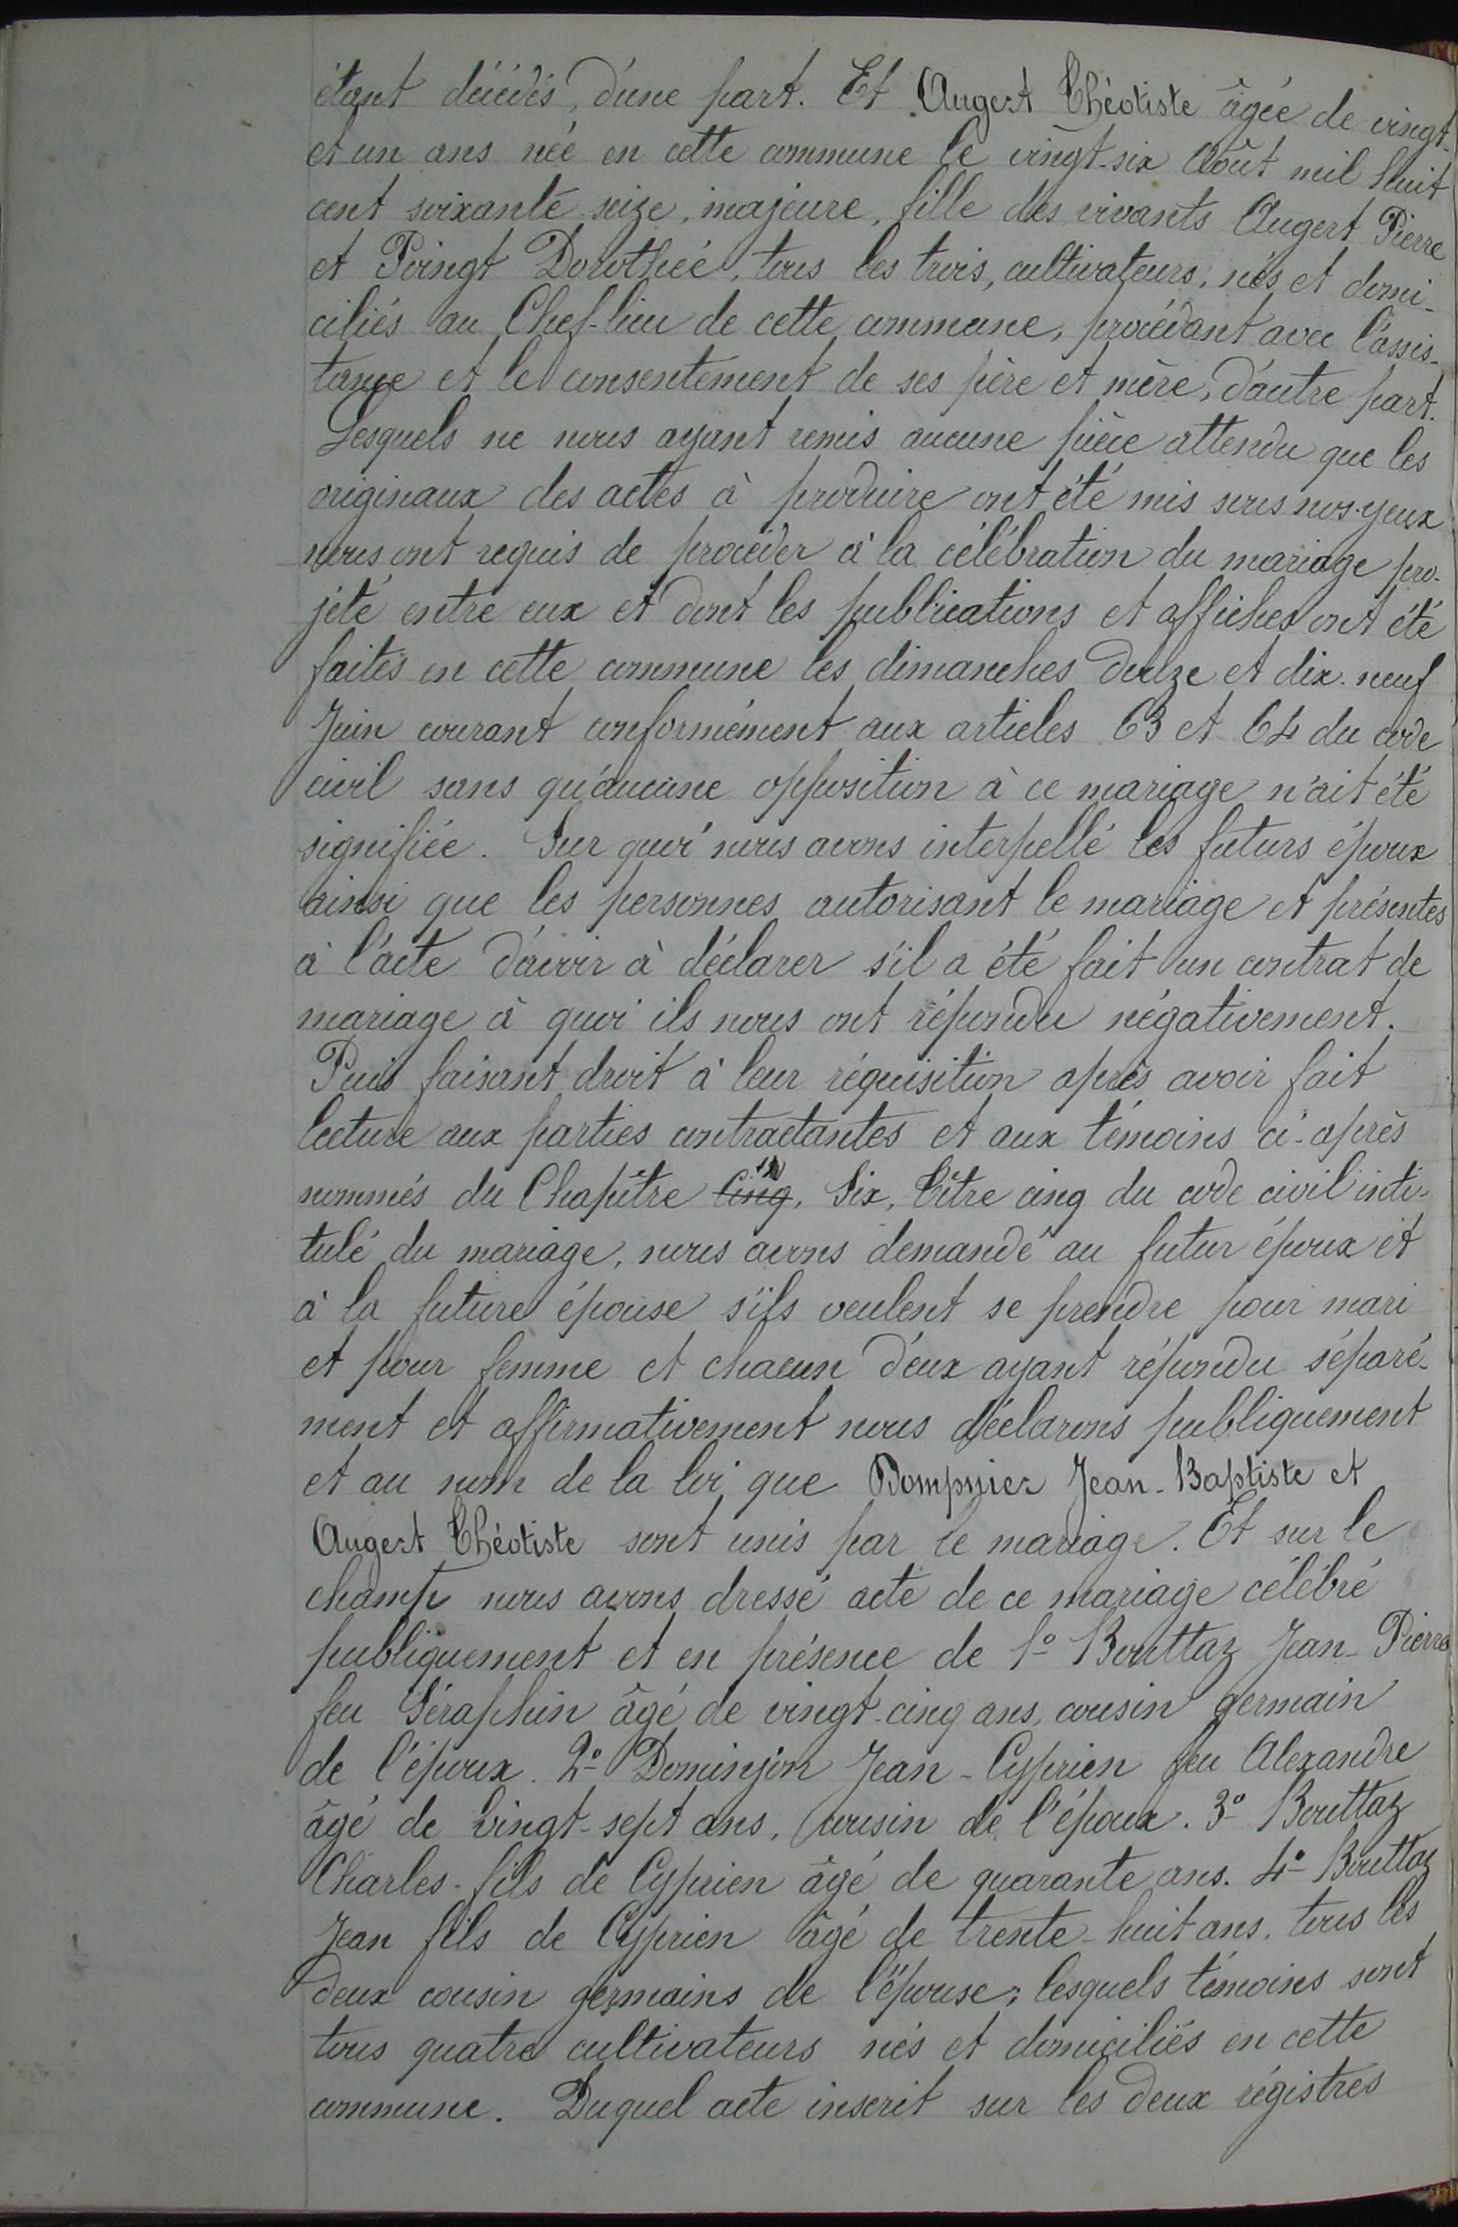 étant décédés, d'une part. Et Augert Théotiste âgée de vingt-
et un ans née en cette commune le vingt-six Août mil huit
cent soixante-seize, majeure, fille des vivants Augert Pierre
et Poingt Dorothée, tous les trois, cultivateurs, nés et domi-
ciliés au Chef-lieu de cette commune, procédant avec l'assis-
tance et le consentement de ses père et mère, d'autre part.
Lesquels ne nous ayant remis aucune pièce attendu que les
originaux des actes à produire ont été mis sous nos yeux
nous ont requis de procéder à la célébration du mariage pro-
jeté entre eux et dont les publications et affiches ont été
faites en cette commune les dimanches douze et dix-neuf
Juin courant conformément aux articles 63 et 64 du code
civil sans qu'aucune opposition à ce mariage n'ait été
signifiée. Sur quoi nous avons interpellé les futurs époux
ainsi que les personnes autorisant le mariage et présentes
à l'acte d'avoir à déclarer s'il a été fait un contrat de
mariage à quoi ils nous ont répondu négativement.
Puis faisant droit à leur réquisition après avoir fait
lecture aux parties contractantes et aux témoins ci-après
nommés du Chapitre Cinq, Six, Titre cinq du code civil inti-
tulé du mariage, nous avons demandé au futur époux et
à la future épouse s'ils veulent se prendre pour mari
et pour femme et chacun d'eux ayant répondu séparé-
ment et affirmativement nous déclarons publiquement
et au nom de la loi que Dompnier Jean-Baptiste et
Augert Théotiste sont unis par le mariage. Et sur le
champ nous avons dressé acte de ce mariage célébré
publiquement et en présence de 1º Bouttaz Jean-Pierre
feu Séraphin âgé de vingt-cinq ans, cousin germain
de l'époux. 2º Dominjon Jean-Cyprien feu Alexandre
âgé de vingt-sept ans, cousin de l'époux. 3º Bouttaz
Charles fils de Cyprien âgé de quarante ans. 4º Bouttaz
Jean fils de Cyprien âgé de trente-huit ans, tous les
deux cousin germains de l'épouse; lesquels témoins sont
tous quatre cultivateurs nés et domiciliés en cette
commune. Duquel acte inscrit sur les deux régistres